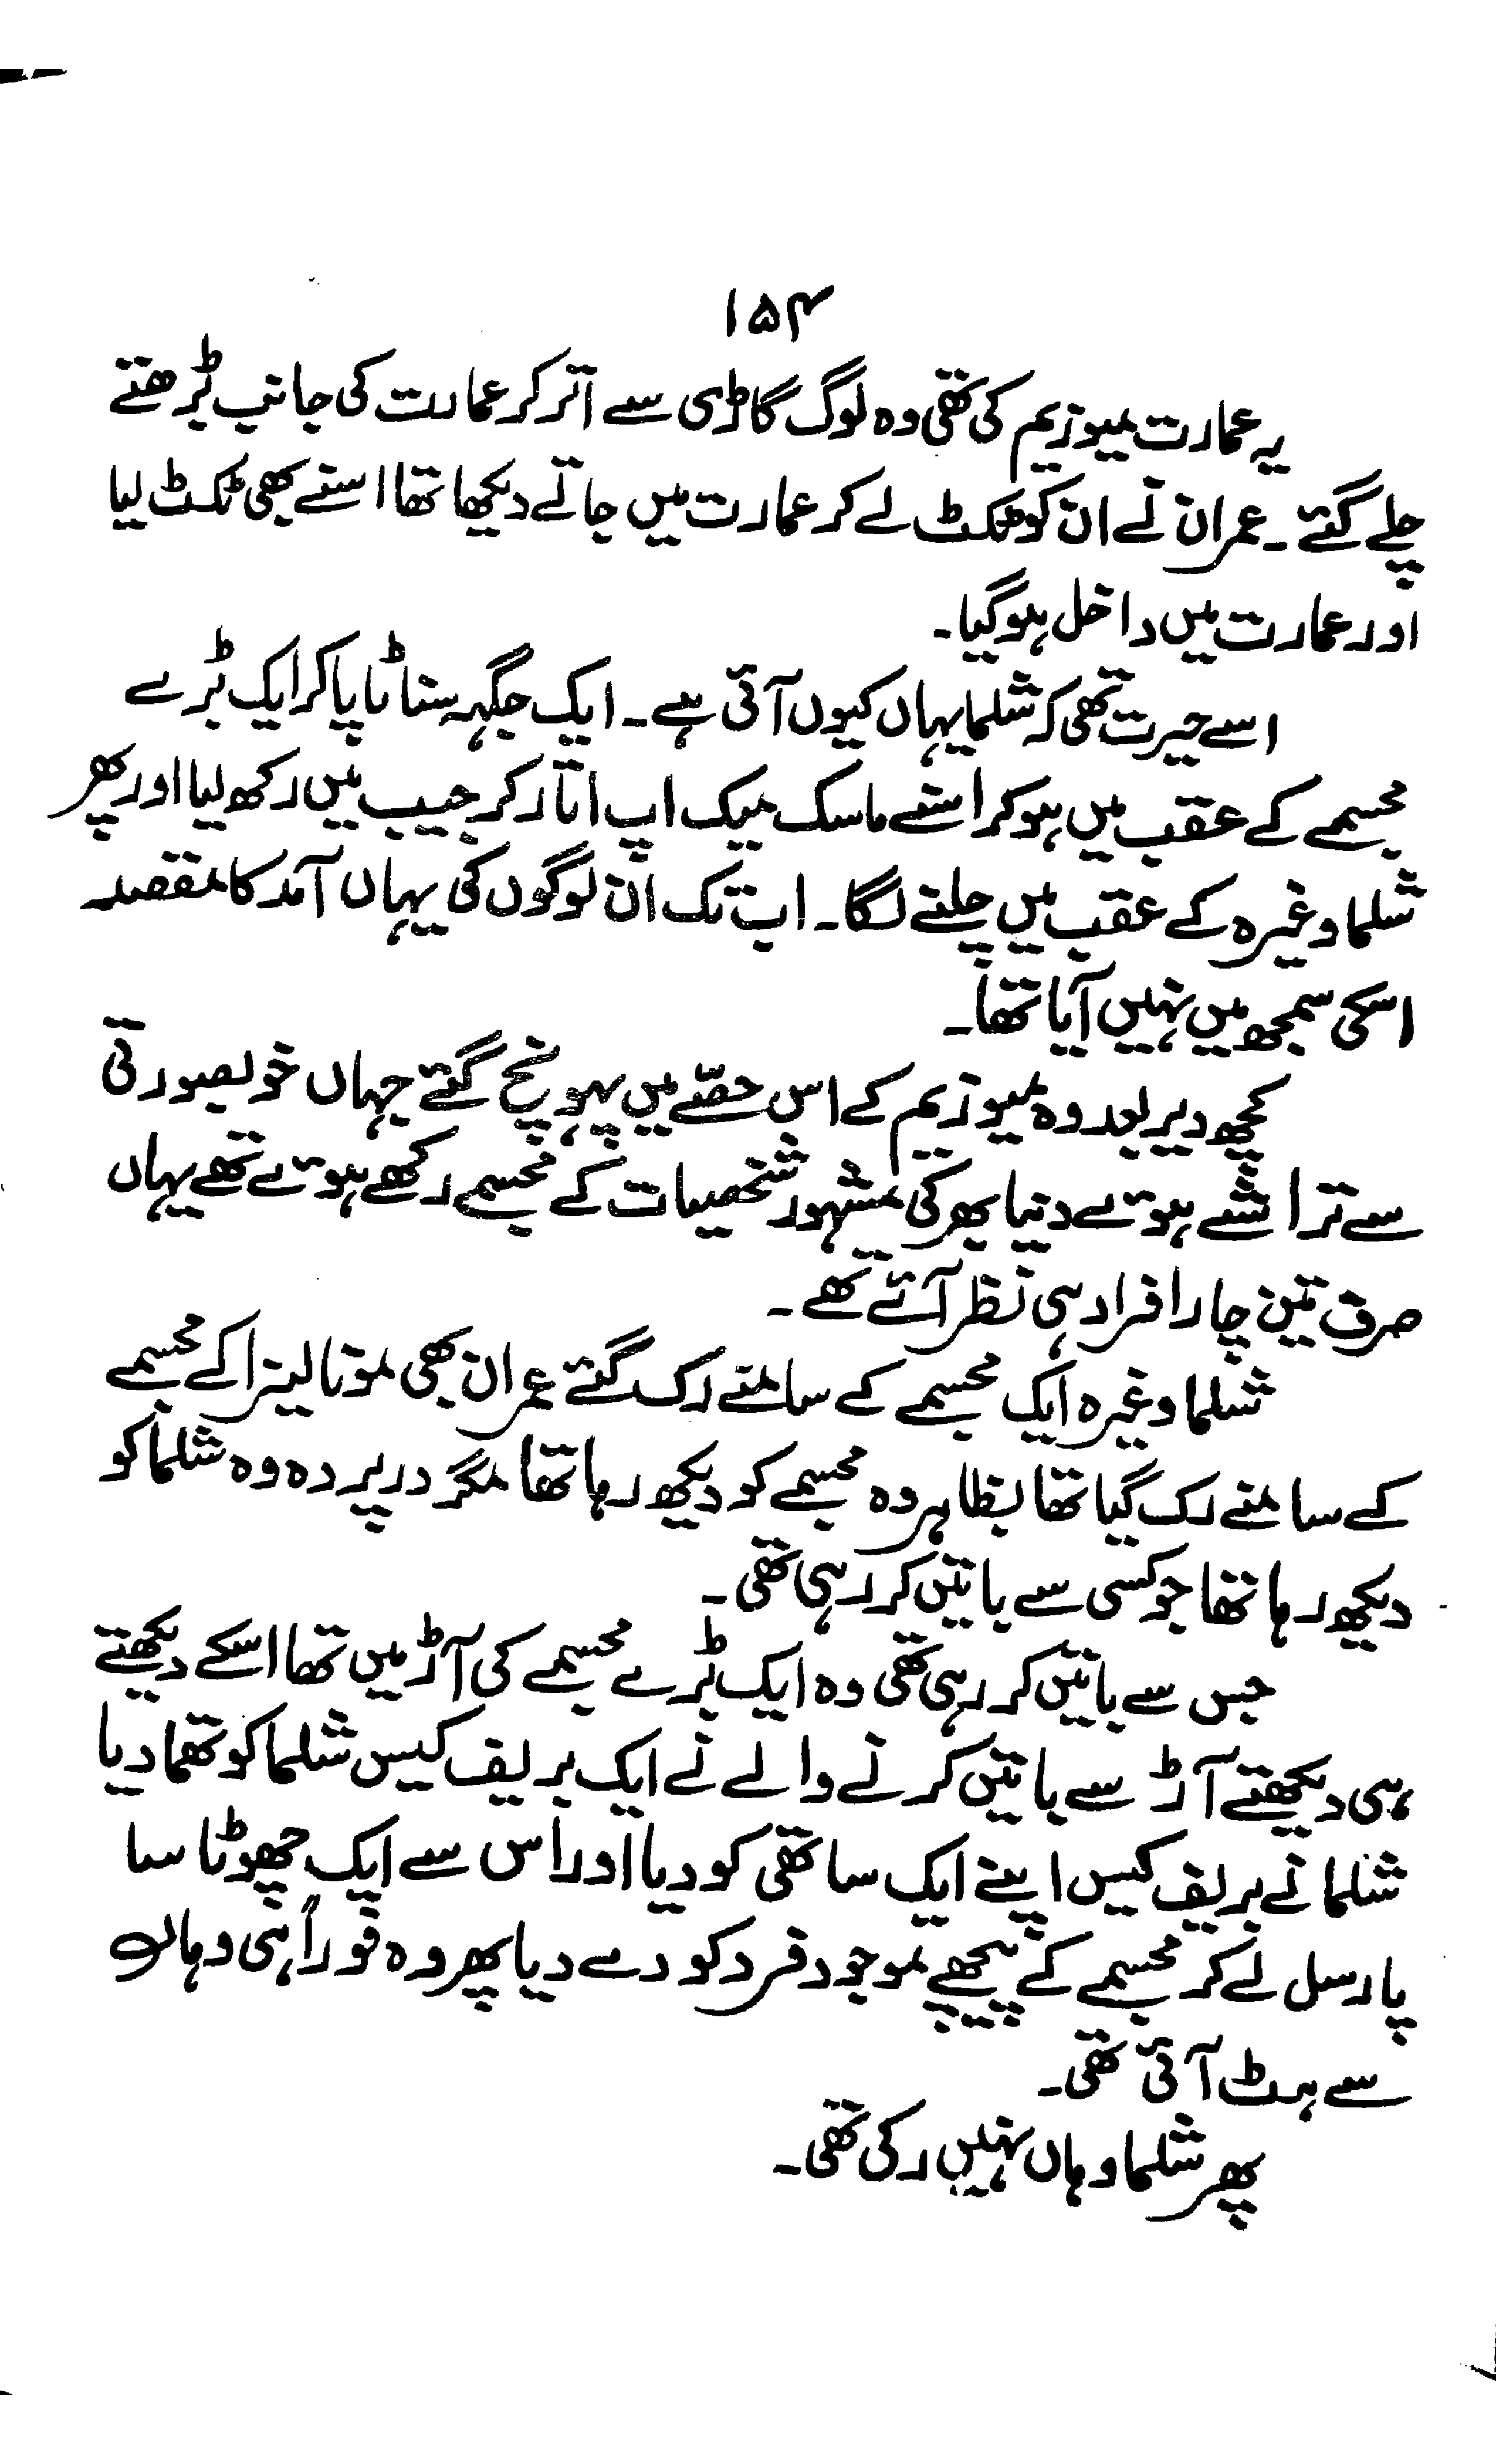 ۱۵۴
یہ عمارت میوزیم کی تھی وہ لوگ گاڑی سے اتر کر عمارت کی جانب بڑھتے
چلے گئے۔ عمران نے ان کو ٹکٹ لے کر عمارت میں جاتے دیکھا تھا اسنے بھی ٹکٹ لیا
اور عمارت میں داخل ہو گیا۔
اسے حیرت تھی کہ شلما یہاں کیوں آئی ہے۔ ایک جگہہ سناٹا پا کر ایک بڑے
مجسمے کے عقب میں ہو کر اسنے ماسک میک اپ اتار کر جیب میں رکھ لیا اور پھر
شلما وغیرہ کے عقب میں چلنے لگا۔ اب تک ان لوگوں کی یہاں آمد کا مقصد
اسکی سمجھ میں نہیں آیا تھا۔
کچھ دیر بعد وہ میوزیم کے اس حصّے میں پہونچ گئے جہاں خوبصورتی
سے تراشے ہوئے دنیا بھر کی مشہور شخصیات کے مجسمے رکھے ہوئے تھے یہاں
صرف تین چار افراد ہی نظر آئے تھے۔
شلما وغیرہ ایک مجسمے کے سامنے رک گئے عمران بھی مونا لیزا کے مجسمے
کے سامنے رک گیا تھا بظاہر وہ مجسمے کو دیکھ رہا تھا مگر در پردہ وہ شلما کو
دیکھ رہا تھا جو کسی سے باتیں کر رہی تھی۔
جس سے باتیں کر رہی تھی وہ ایک بڑے مجسمے کی آڑ میں تھا اسکے دیکھتے
ہی دیکھتے آڑ سے باتیں کرنے والے نے ایک بریف کیس شلما کو تھما دیا
شلما نے بریف کیس اپنے ایک ساتھی کو دیا اور اس سے ایک چھوٹا سا
پارسل لے کر مجسمے کے پیچھے موجود فرد کو دے دیا پھر وہ فوراً ہی وہاں
سے ہٹ آئی تھی۔
پھر شلما وہاں نہیں رکی تھی۔